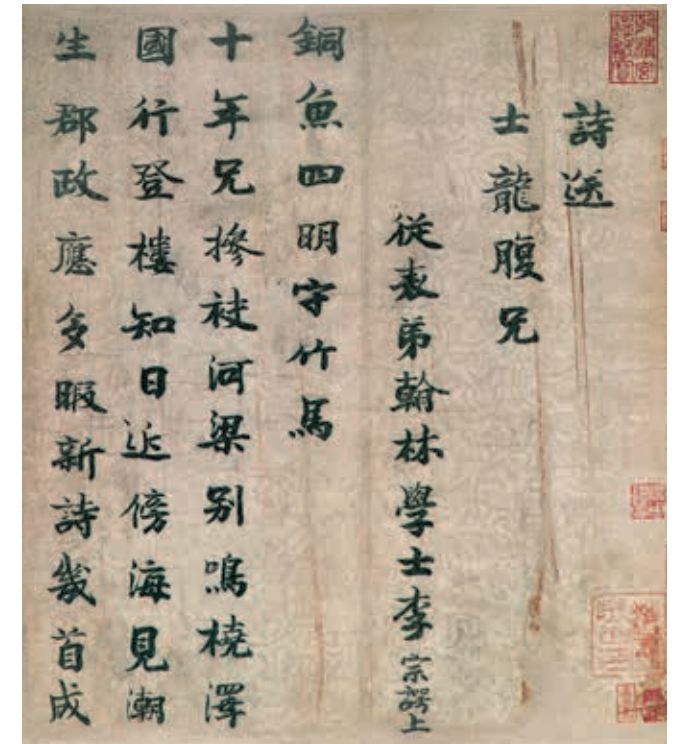 詩送
士龍腹兄
從表弟翰林學士李宗諤上
銅魚四明守竹馬
十年兄摻袂河梁別鳴橈澤
國行登樓知日近傍海見潮
生郡政應多暇新詩幾首成